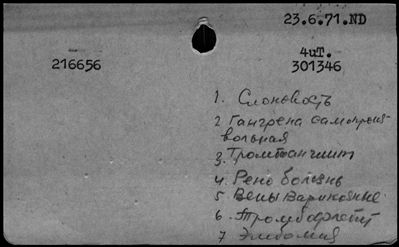 23.6.71.ND
4uT.
216656
301346
1. Слоновость
2 Гангрена самопроиз-
вольная
3. Тромбангиит
4. Рено болезнь
5 Вены варикозные
6. Тромбофлебит
7 Эмболия